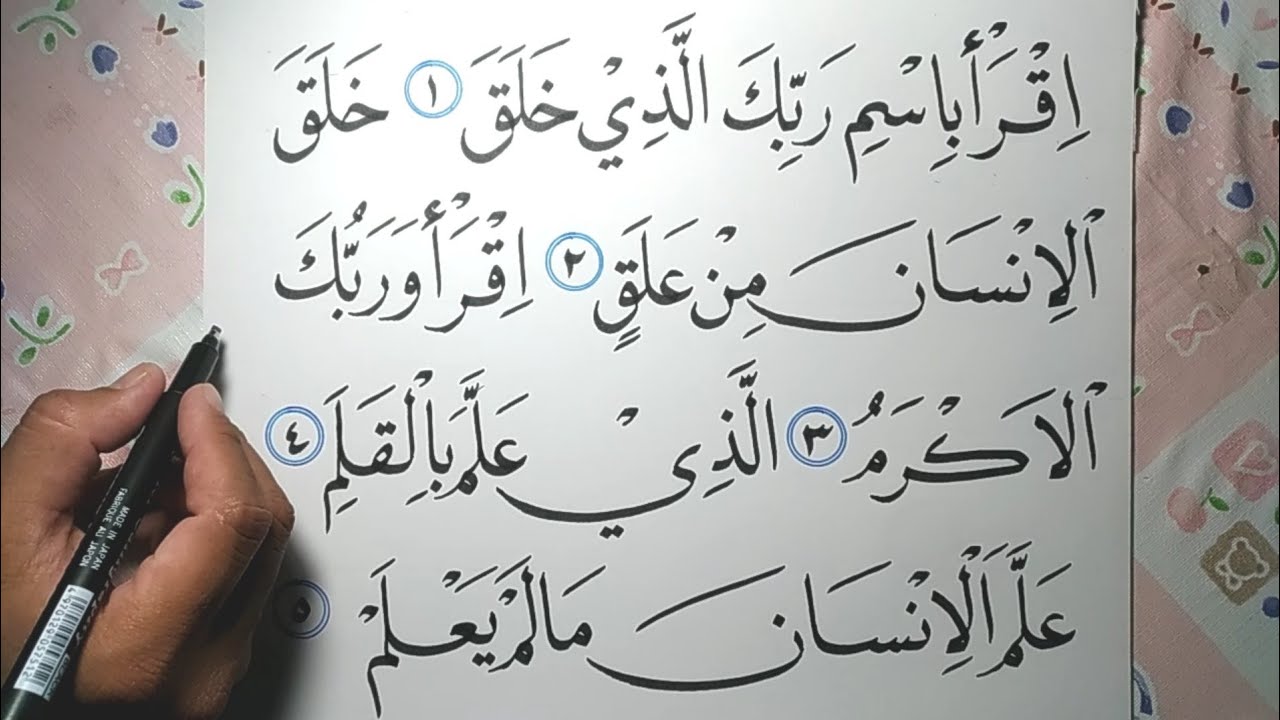 اِقْرَأْ بِاسْمِ رَبِّكَ الَّذِيْ خَلَقَ ١ خَلَقَ
الْاِنْسَانَ مِنْ عَلَقٍ ٢ اِقْرَأْ وَرَبُّكَ
الْاَكْرَمُ ٣ الَّذِيْ عَلَّمَ بِالْقَلَمِ ٤
عَلَّمَ الْاِنْسَانَ مَا لَمْ يَعْلَمْ ٥
MADE IN JAPAN
FABRIQUE AU JAPON